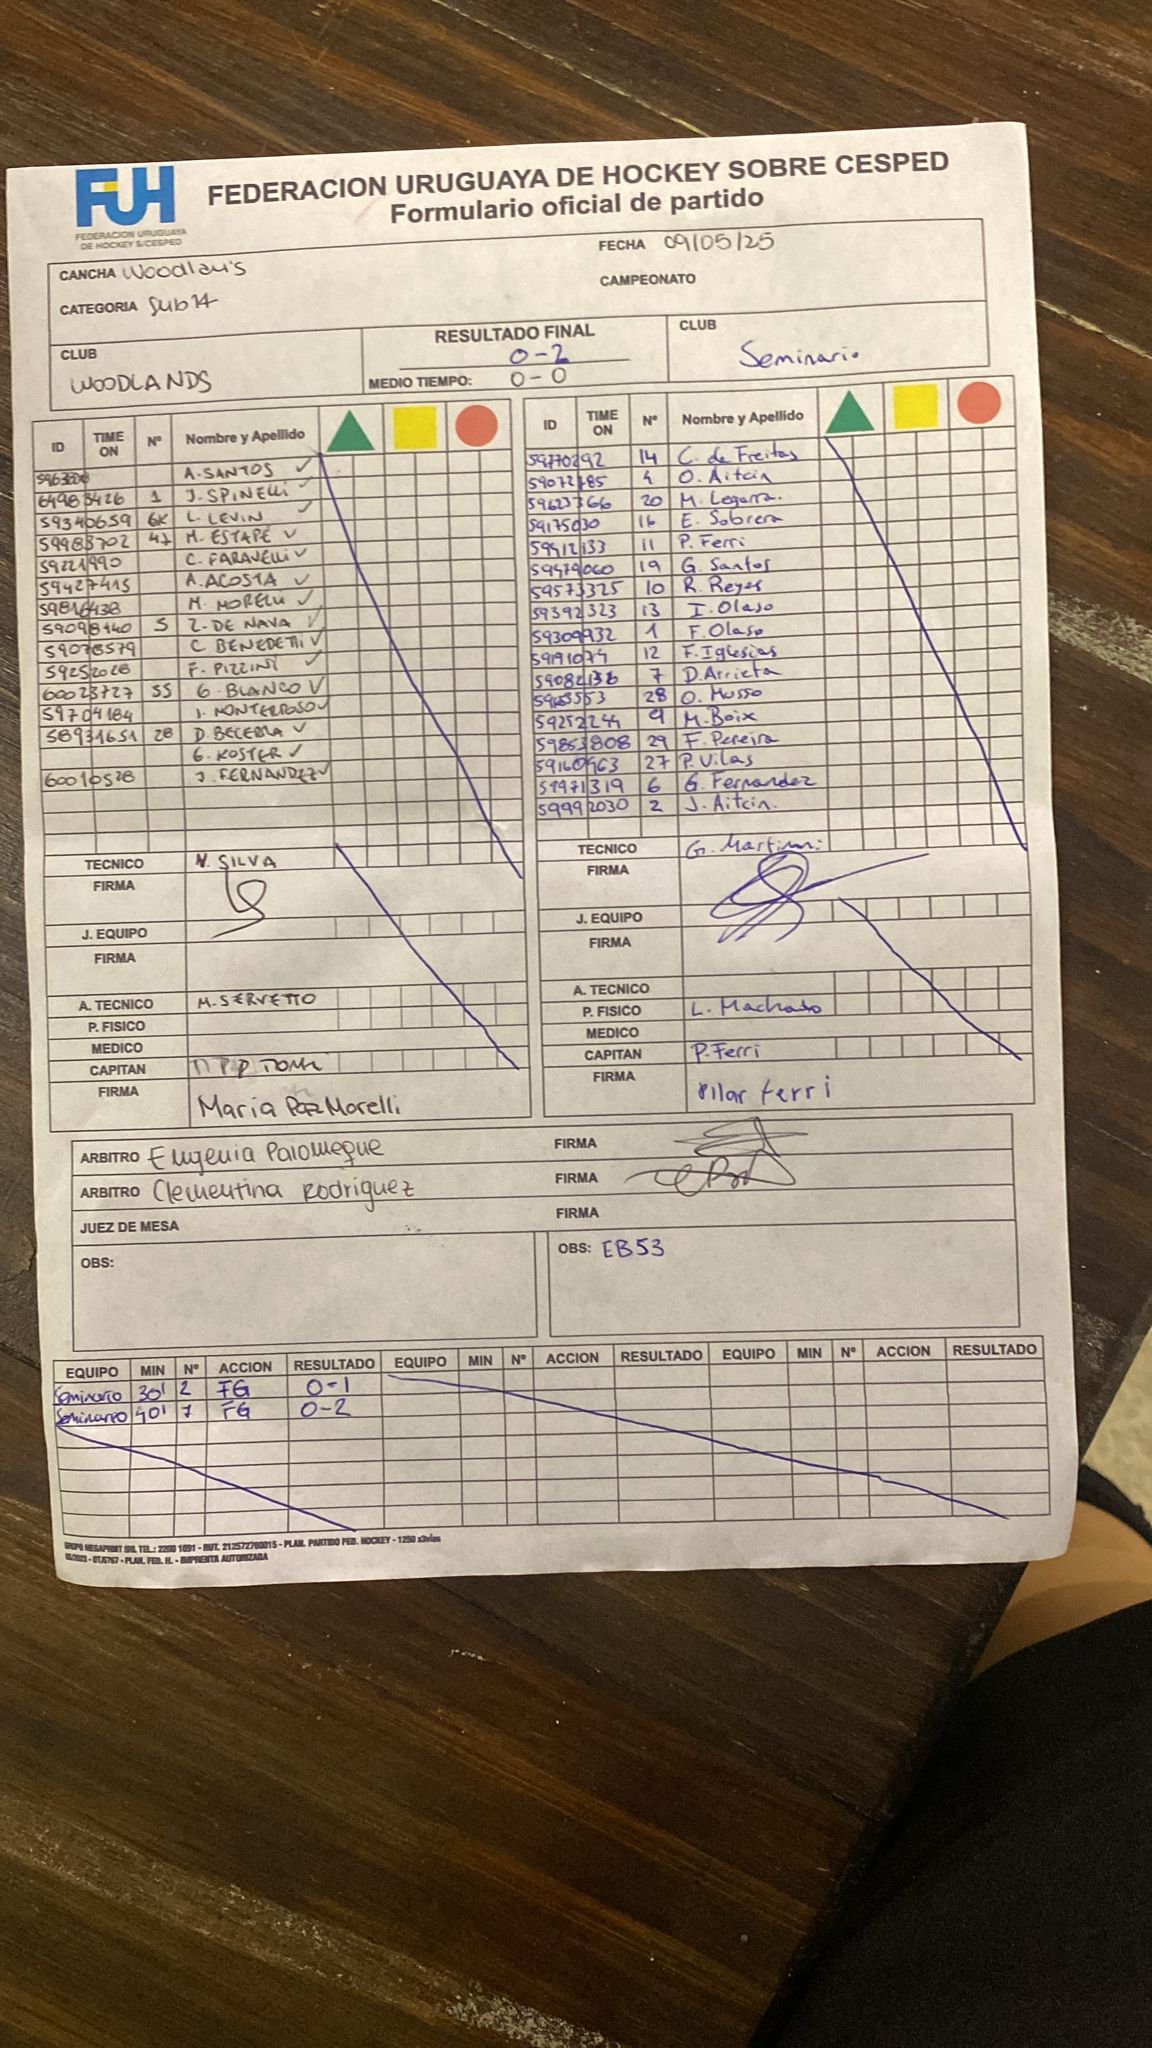 FUH
FEDERACION URUGUAYA
DE HOCKEY S/CESPED
FEDERACION URUGUAYA DE HOCKEY SOBRE CESPED
Formulario oficial de partido
CANCHA Woodlan's
FECHA 09/05/25
CATEGORIA Sub14
CAMPEONATO
CLUB
WOODLANDS
RESULTADO FINAL
0-2
MEDIO TIEMPO: 0-0
CLUB
Seminario
ID TIME ON Nº Nombre y Apellido
A. SANTOS ✓
64983426 1 J. SPINELLI ✓
59340659 L. LEVIN ✓
59983702 M. ESTAPÉ ✓
59221990 C. FARAVELLI ✓
59427415 A. ACOSTA ✓
59816438 M. MORELLI ✓
59098440 5 Z. DE NAVA ✓
59078579 C BENEDETTI ✓
59252028 F. PIZZINI ✓
60023727 55 G. BLANCO ✓
59704184 J. MONTERROSO ✓
58931651 28 D. BECERRA ✓
G. KOSTER ✓
60010528 J. FERNANDEZ ✓
TECNICO N. SILVA
FIRMA
J. EQUIPO
FIRMA
A. TECNICO M. SERVETTO
P. FISICO
MEDICO
CAPITAN
FIRMA Maria Paz Morelli
ID TIME ON Nº Nombre y Apellido
59770292 14 C. de Freitas
59072785 4 O. Aitcin
59623366 20 M. Legarra.
59175030 16 E. Sobrera
59412133 11 P. Ferri
59479060 19 G. Santos
59573325 10 R. Reyes
59392323 13 I. Olaso
59309932 1 F. Olaso
59191074 12 F. Iglesias
59082138 7 D. Arrieta
28 O. Musso
59252244 9 M. Boix
59853808 29 F. Pereira
59160963 27 P. Vilas
59971319 6 G. Fernandez
59992030 2 J. Aitcin.
TECNICO G. Martinni
FIRMA
J. EQUIPO
FIRMA
A. TECNICO
P. FISICO L. Machado
MEDICO
CAPITAN P. Ferri
FIRMA Pilar Ferri
ARBITRO Eugenia Palomeque FIRMA
ARBITRO Clementina Rodriguez FIRMA
JUEZ DE MESA FIRMA
OBS:
OBS: EB53
EQUIPO MIN Nº ACCION RESULTADO EQUIPO MIN Nº ACCION RESULTADO EQUIPO MIN Nº ACCION RESULTADO
Seminario 30' 2 FG 0-1
Seminario 40' 7 FG 0-2
GRUPO MEGAPRINT SRL TEL.: 2200 1091 - RUT. 212572760015 - PLAN. PARTIDO FED. HOCKEY - 1250 x3vías
05/2023 - OT/6767 - PLAN. FED. H. - IMPRENTA AUTORIZADA